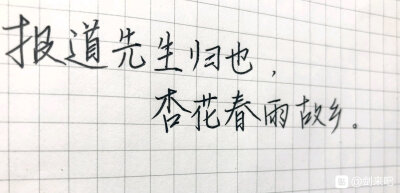 报道先生归也，
杏花春雨故乡。
@剑来吧